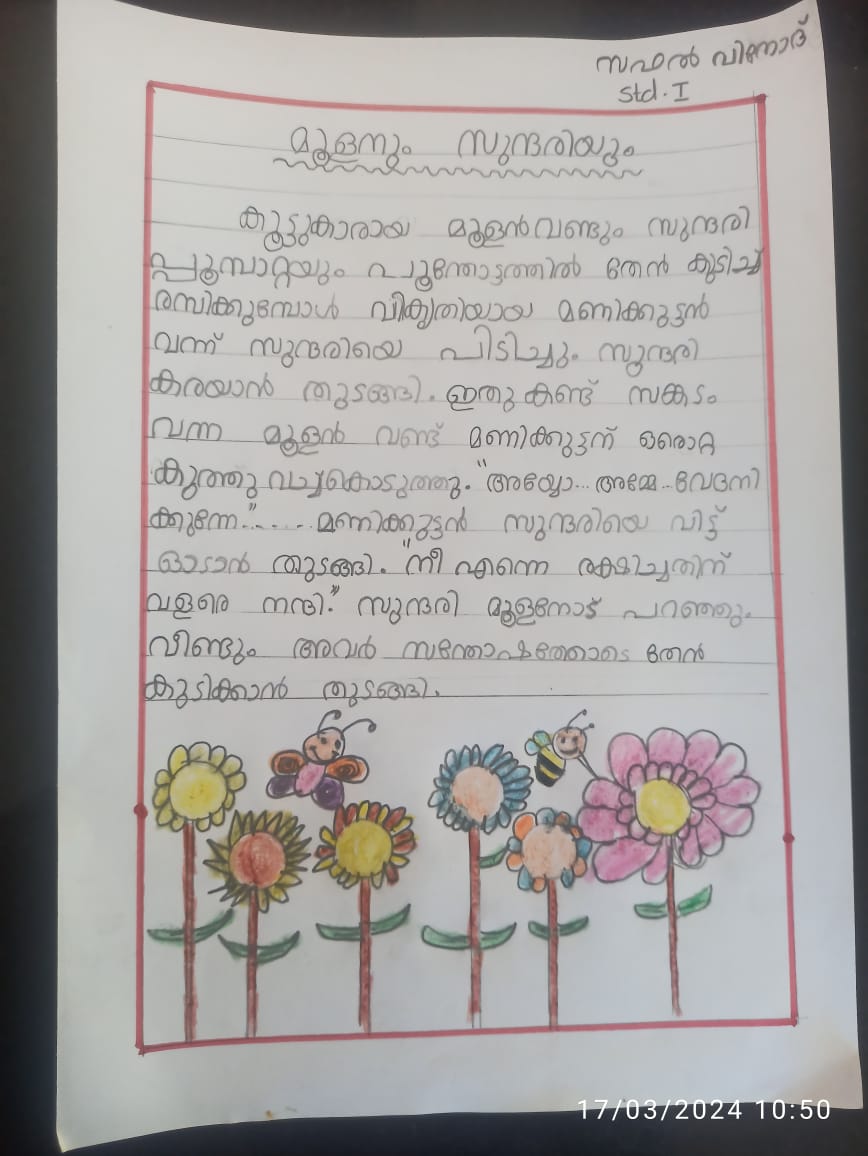 സഫൽ വിനോദ്
Std. I
മൂളനും സുന്ദരിയും
കൂട്ടുകാരായ മൂളൻവണ്ടും സുന്ദരി
പ്പൂമ്പാറ്റയും പൂന്തോട്ടത്തിൽ തേൻ കുടിച്ച്
രസിക്കുമ്പോൾ വികൃതിയായ മണിക്കുട്ടൻ
വന്ന് സുന്ദരിയെ പിടിച്ചും. സുന്ദരി
കരയാൻ തുടങ്ങി. ഇതു കണ്ട് സങ്കടം
വന്ന മൂളൻ വണ്ട് മണിക്കുട്ടന് ഒരൊറ്റ
കുത്തു വച്ചുകൊടുത്തു. "അയ്യോ... അമ്മേ.. വേദനി
ക്കുന്നേ"...... മണിക്കുട്ടൻ സുന്ദരിയെ വിട്ട്
ഓടാൻ തുടങ്ങി. "നീ എന്നെ രക്ഷിച്ചതിന്
വളരെ നന്ദി." സുന്ദരി മൂളനോട് പറഞ്ഞും.
വീണ്ടും അവർ സന്തോഷത്തോടെ തേൻ
കുടിക്കാൻ തുടങ്ങി.
17/03/2024 10:50